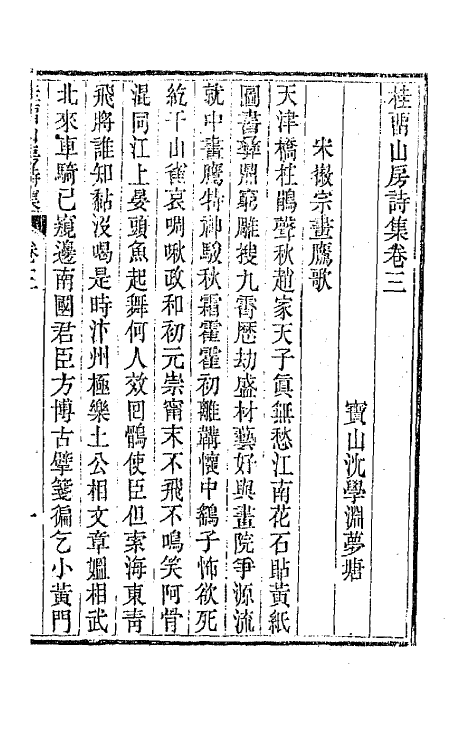 桂留山房詩集卷三
寶山沈學淵夢塘
宋徽宗畫鷹歌
天津橋杜鵑聲秋趙家天子眞無愁江南花石貼黃紙
圖書彝鼎窮雕搜九霄歷劫盛材藝好與畫院爭源流
就中畫鷹特神駿秋霜霍霍初離鞲懷中鷂子怖欲死
紇干山雀哀啁啾政和初元崇甯末不飛不鳴笑阿骨
混同江上晏頭魚起舞何人效回鶻使臣但索海東靑
飛將誰知黏沒喝是時汴州極樂土公相文章媼相武
北來車騎已窺邊南國君臣方博古擘箋徧乞小黃門
桂留山房詩集 卷三 一